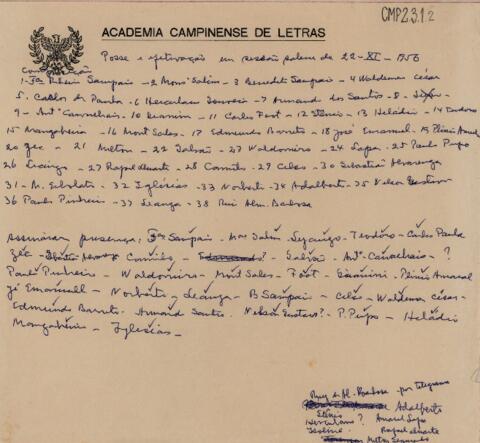 CMP2.3.1.2
ACADEMIA CAMPINENSE DE LETRAS
Posse e efetivação em sessão solene de 22-XI-1956
1-Fco Ribeiro Sampaio -2 Mons Salim -3 Benedito Sampaio -4 Waldemar César
5. Carlos de Paula -6 Herculano -7 Armando dos Santos -8
9 - Antº -10 -11 Carlos Foot -12 Stenio -13 Heládio -14 Teodoro
15 Mangabeira -16 Mont Sales -17 Edmundo Barreto -18 José Emanuel -19 Plinio Amaral
20 Zéo - 21 Milton - 22 Galvão -27 Waldomiro -24 Lapa -25 Paulo Pupo
26 -27 Rafael Duarte -28 Camilo -29 Celso -30 Sebastião Alvarenga
31 - M. - 32 Iglésias -33 Norberto -34 Adalberto -35 Nelson Gustavo
36 Paulo Pinheiro -37 -38 Rui Alm. Barbosa
Assinaram presença: Fco Sampaio - Mons Salim - Teodoro - Carlos Paula
Zéo - Camilo - - Galvão - Antº ?
Paulo Pinheiro - Waldomiro - Mont Sales - Foot - - Plinio Amaral
José Emanuel - Norberto - - B Sampaio - Celso - Waldemar César -
Edmundo Barreto - Armando Santos. Nelson Gustavo? - P. Pupo - Heládio
Mangabeira - Iglésias -
Ruy de Al. Barbosa - por telegrama
Adalberto
Stenio Amaral Lapa
Herculano? Rafael Duarte